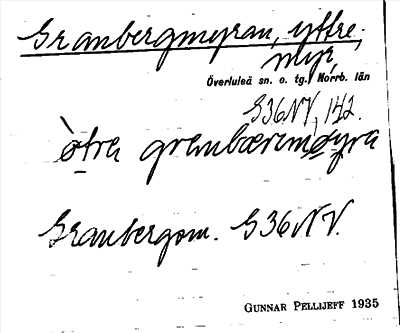 Granbergmyran, yttre.
myr,
Överluleå sn. o. tg., Norrb. län
G36NV, 142.
òtre granbæremøyra
Granbergsm. G36NV.
GUNNAR PELLIJEFF 1935